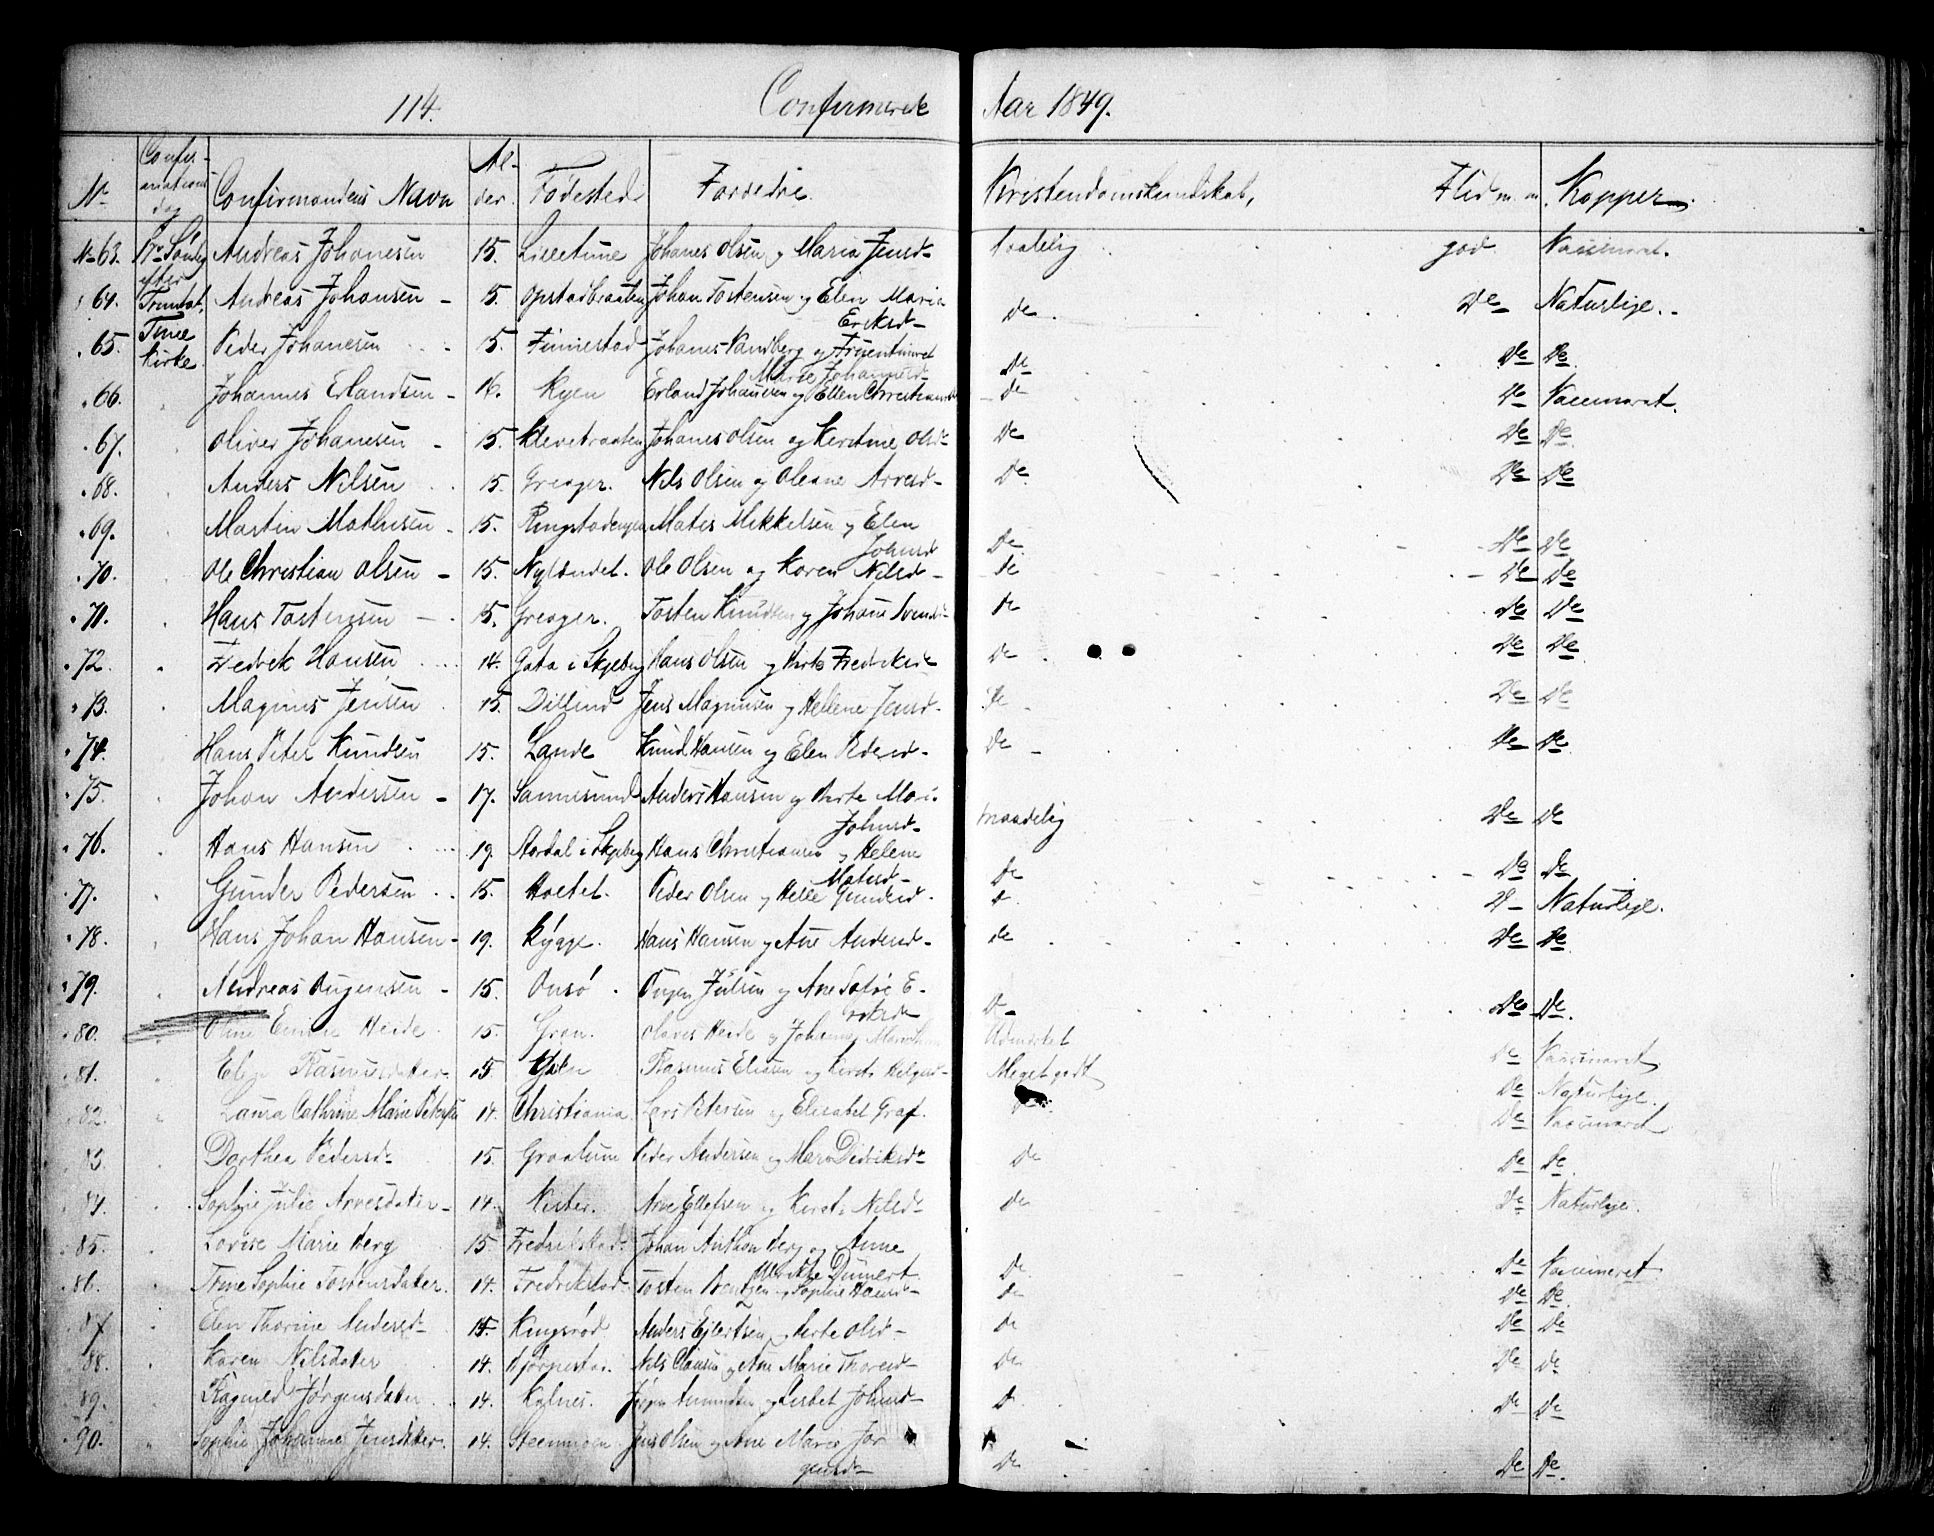 114. Confirmerede Aar 1849.
No Confirmations dag Confirmandens Navn Alder. Fødested Forældre. Kristendomskundskab, Flid m. m. Kopper
No 63. Søndag efter Andreas Johanesen 15. Lilletune Johanes Olsen og Maria Jensd- taalelig god. Vaccineret.
64. Trinitat. Andreas Johansen - 15. Opstadbraaten Johan Tostensen og Elen Maria
Eriksd- De De Naturlige.
65. Tune Kirke Peder Johanesen 15. Finnestad Johanes Sandberg og Fruentimret
Marie Johannesd- De De De.
66. Johannes Erlandsen - 16. Ryen Erland Johannesen og Ellen Christiansd De De Vaccineret.
67. Oliver Johanesen - 15. Klevebraaten Johanes Olsen og Kerstine Olsd- De De De
68. Anders Nilsen 15. Greager. Nils Olsen og Oleane Arvesd- De De De
69. Martin Mathisen - 15. Ringstadengen Mates Mikkelsen og Elen
Johnsd De De De
70. Ole Christian Olsen - 15. Nylændet. Ole Olsen og Karen Nilsd- De De De
71. Hans Tostensen - 15. Greager. Tosten Knudsen og Johane Svends- De De De
72. Fredrek Hansen 14. Gata i Skjeberg Hans Olsen og Berte Fredriksd De De De
73. Magnus Jensen 15. Dillind Jens Magnusen og Hellene Jensd- De De De
74. Hans Peter Knudsen 15. Lande Knud Hansen og Elen Pedersd- De De De
75. Johan Andersen - 17. Sannesund Anders Hansen og Berte Mari
Johnsd- maadelig De De
76. Hans Hansen 19. Aardal i Skjeberg Hans Christiansen og Helene
Matsd- De De De
77. Gunder Pedersen 15. Hoetet. Peder Olsen og Helle Gundersd. d. D- Naturlige.
78. Hans Johan Hansen - 19. Rygge. Hans Hansen og Ane Andersd- De De De
79. Andreas Jurgensen - 15. Onsø Jurgen Julsen og Ane Sofie E-
riksd- De De De.
80. Heide. 15. Gron. Heide og Johanne Udmærket
81. Elen Rasmusdater. 15 Rasmus Eliasen og Kersti Helgesd- Meget godt De Vaccineret
82. Laura Cathrine Marie Petersen 14. Christiania. Lars Petersen og Elisabet Graf. De Naturlige.
De Vaccineret
83 Dorthea Pedersd- 15. Graalum Peder Andersen og Maren Didriksd- De De De.
84. Sophie Julie Arvesdater - 14. Arve Ellefsen og Kersti Nilsd- De De Naturlige.
85. Lovise Marie Berg 15. Fredrikstad. Johan Anthon Berg og Anne
Dunert. De De Vaccineret
86. Trine Sophie Tostensdater. 14. Fredrikstad. Tosten Berntzen og Sophie Hansd- De De De.
87 Elen Thorine Andersd- 14 Kingsrød Anders Ejlertsen og Berte Olsd- De De De
88. Karen Nilsdater 14. Bjørnestad. Nils Clausen og Ane Marie Thoresd- De De De
89. Ragnild Jørgensdater 14. Kalnes. Jørgen Amundsen og Lisbet Johnsd- D. De De
90. Sophie Johanne Jensdater. 14. Steenmoen Jens Olsen og Ane Marie Jør
gensd- De De De.